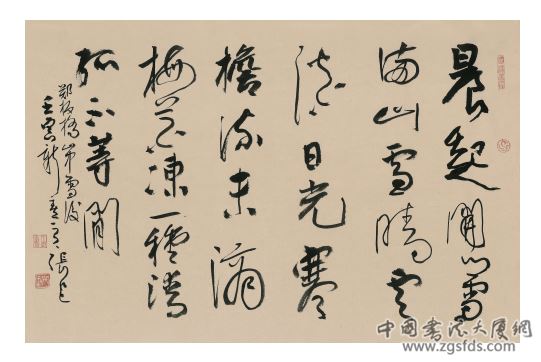 晨起開門雪
滿山雪晴雲
淡日光寒
檐流未滴
梅花凍一種清
孤不等閒
鄭板橋山中雪後
壬寅新春
張
中國書法大厦網
www.zgsfds.com